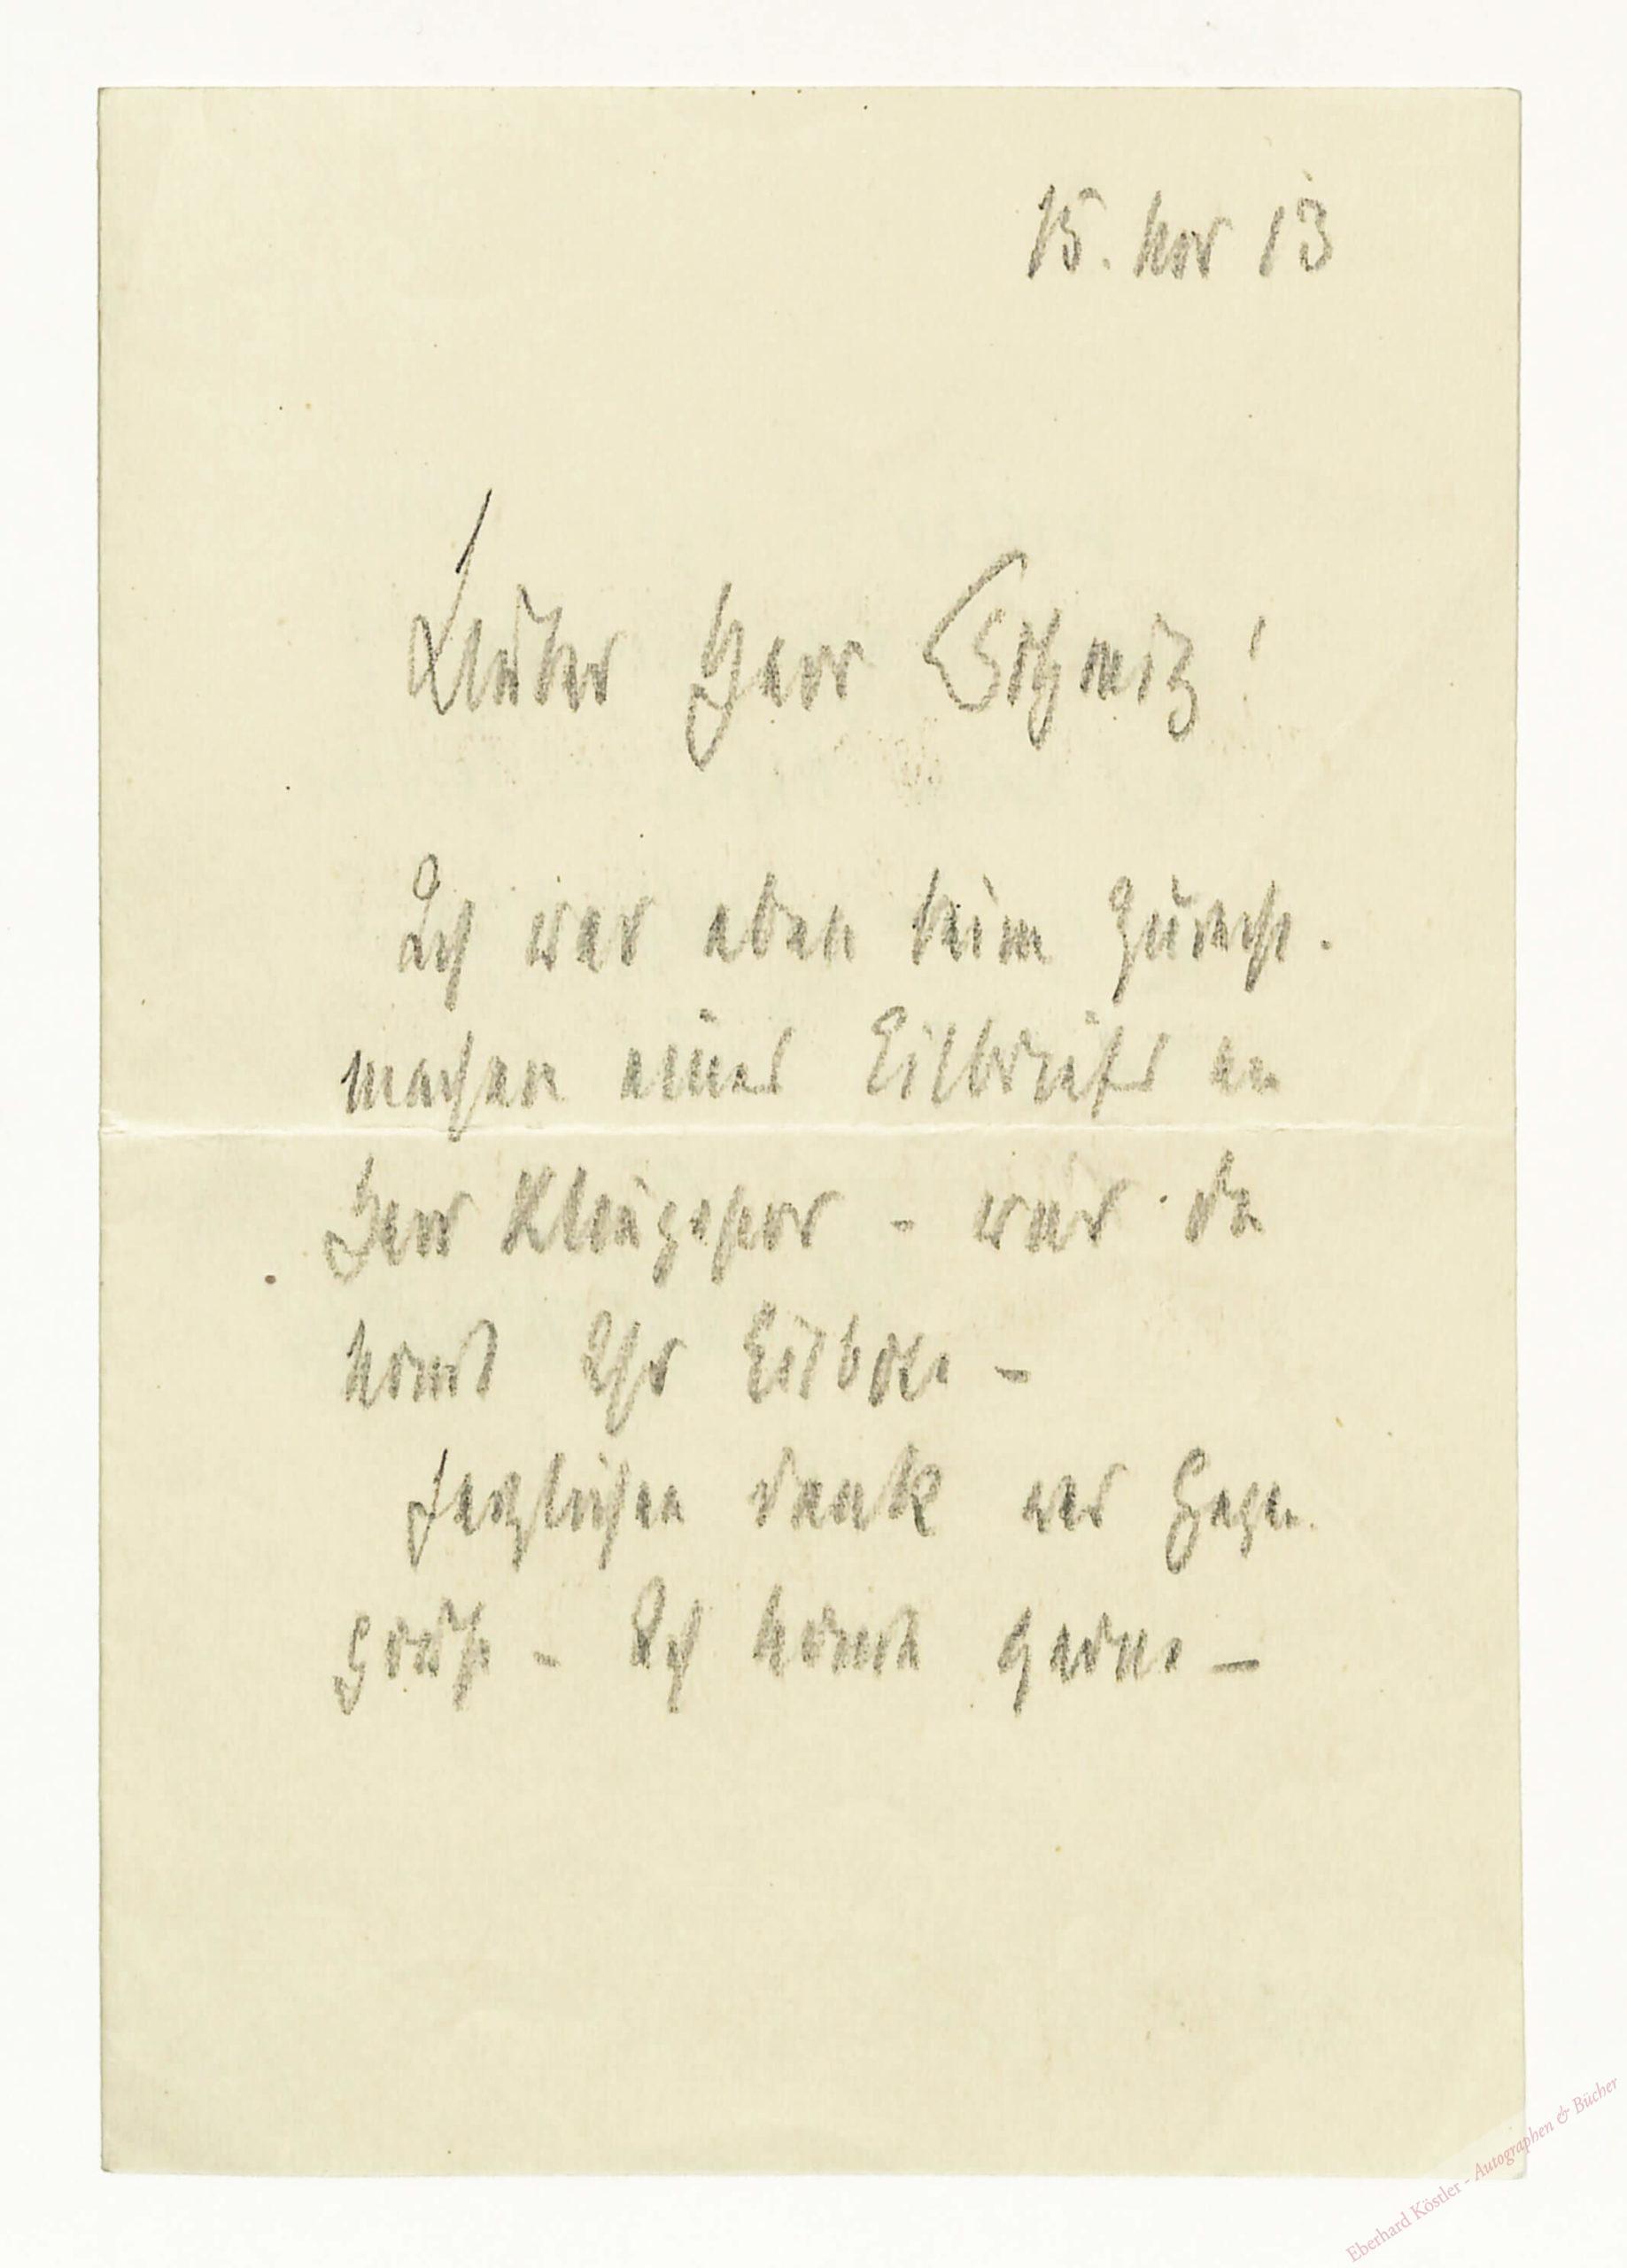 15. Nov 13
Lieber Herr
Ich war eben beim Zurecht-
machen eines Eilbriefs an
Herr Klingspor - war da
komt Ihr Eilbote -
Herzlichen Dank und Gegen-
grüße - Ich komme gerne -
Eberhard Köstler - Autographen & Bücher